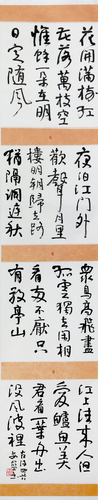 花開滿樹紅
花落萬枝空
惟餘一朵在明
日定隨風
夜泊江門外
歡聲月里
樓明朝歸去路
猶隔洞庭秋
眾鳥高飛盡
孤雲獨去閑相
看兩不厭只
有敬亭山
江上往來人但
愛鱸魚美
君看一葉舟出
没風波裡